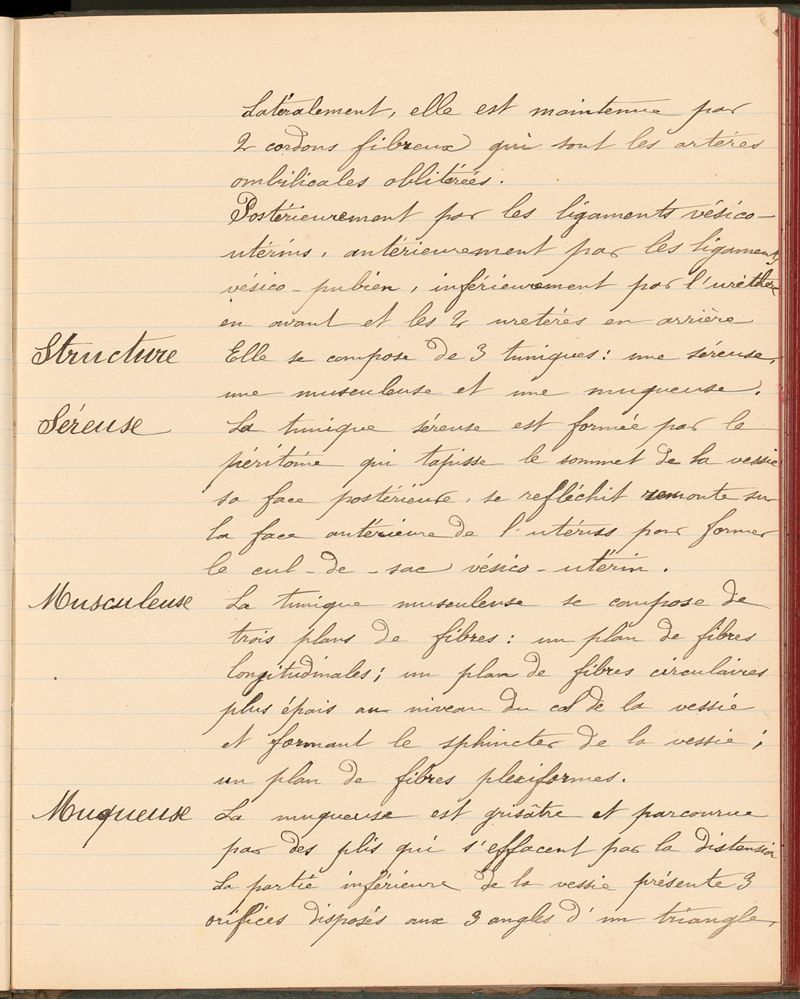 Latéralement, elle est maintenue par
2 cordons fibreux qui sont les artères
ombilicales oblitérées.
Postérieurement par les ligaments vésico-
utérins, antérieurement par les ligaments
vésico-pubien, inférieurement par l'uréthre
en avant et les 2 uretères en arrière
Structure Elle se compose de 3 tuniques: une séreuse,
une musculeuse et une muqueuse.
Séreuse La tunique séreuse est formée par le
péritoine qui tapisse le sommet de la vessie
sa face postérieure, se refléchit remonte sur
la face antérieure de l'utérus pour former
le cul-de-sac vésico-utérin.
Musculeuse La tunique musculeuse se compose de
trois plans de fibres: un plan de fibres
longitudinales; un plan de fibres circulaires
plus épais au niveau du col de la vessie
et formant le sphincter de la vessie;
un plan de fibres plexiformes.
Muqueuse La muqueuse est grisâtre et parcourue
par des plis qui s'effacent par la distension
La partie inférieure de la vessie présente 3
orifices disposés aux 3 angles d'un triangle,